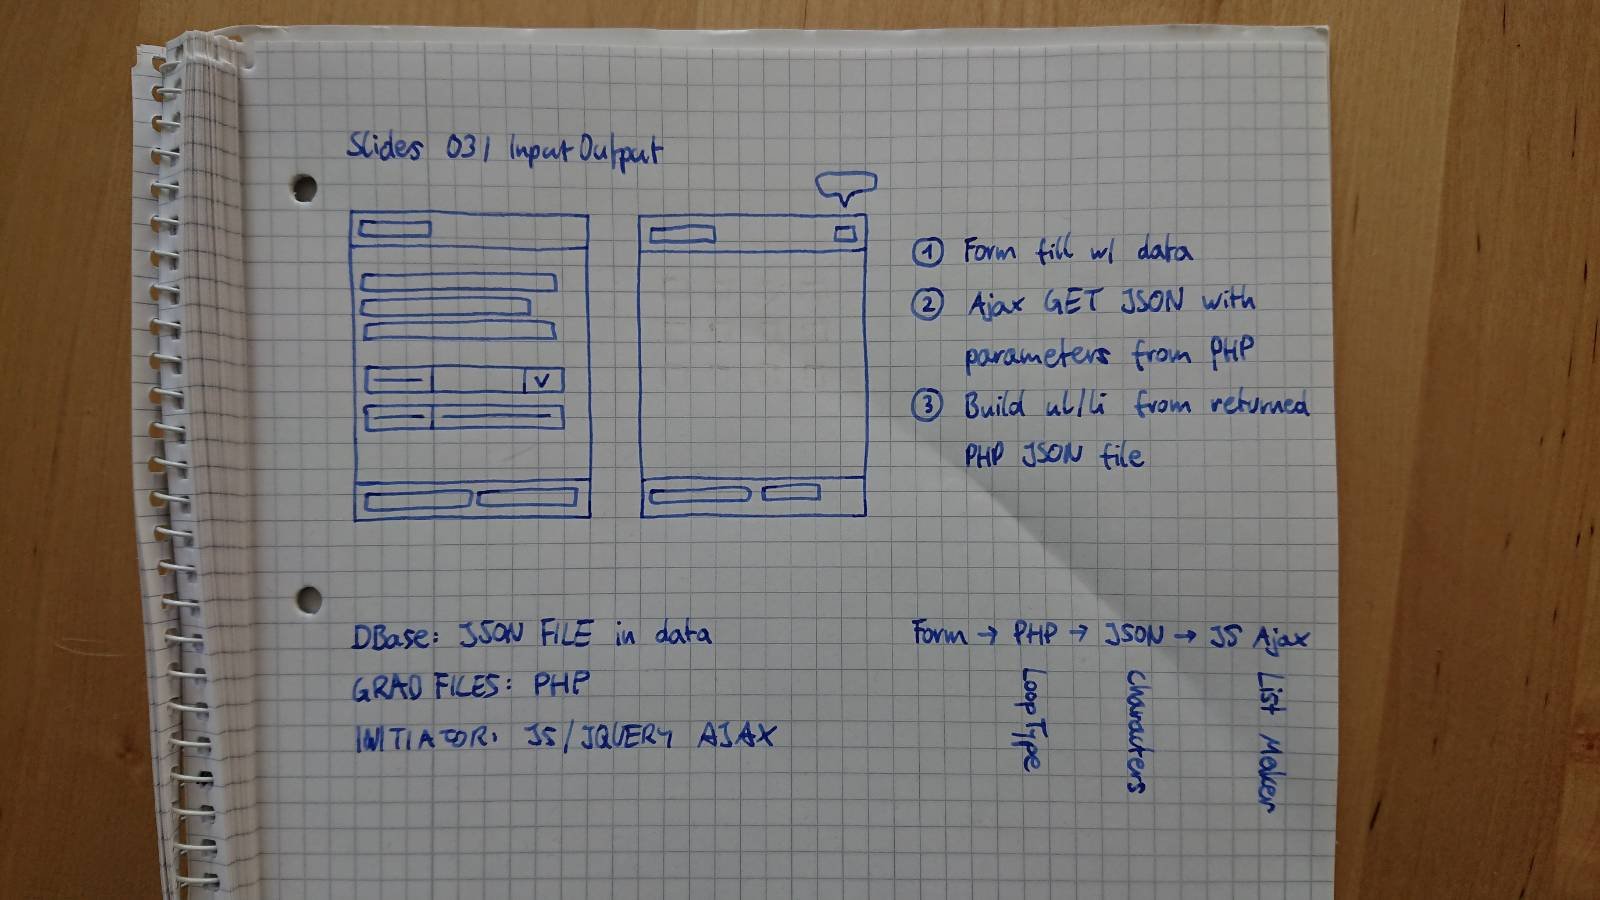 Slides 03 | Input Output
① Form fill w/ data
② Ajax GET JSON with
parameters from PHP
③ Build ul/li from returned
PHP JSON file
DBase: JSON FILE in data
GRAD FILES: PHP
INITIATOR: JS/JQUERY AJAX
Form → PHP → JSON → JS Ajax
Loop Type
Characters
List Maker